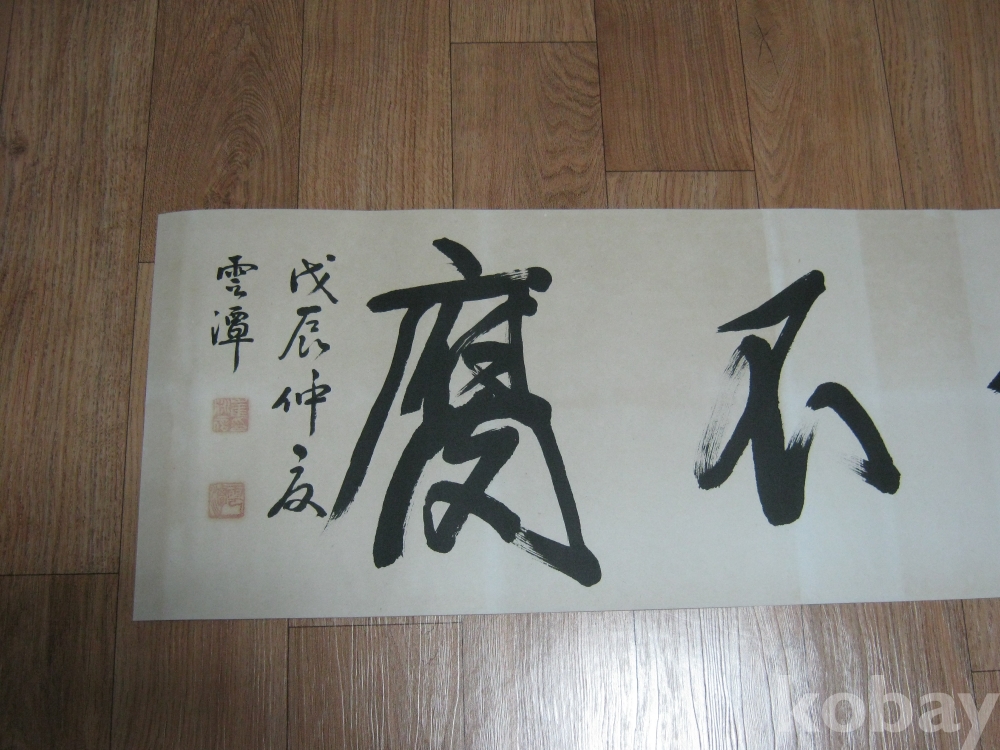 不腐
戊辰仲夏
雲潭
kobay